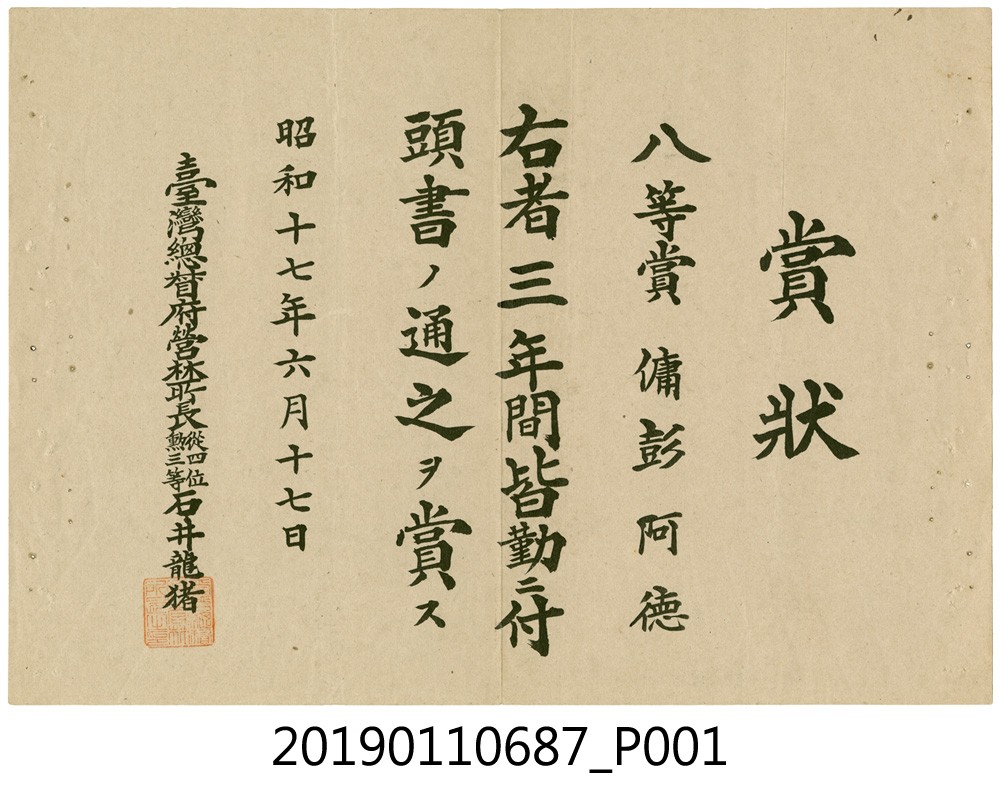 賞狀
八等賞 傭 彭阿德
右者三年間皆勤ニ付
頭書ノ通之ヲ賞ス
昭和十七年六月十七日
臺灣總督府營林所長從四位勲三等石井龍猪
20190110687_P001